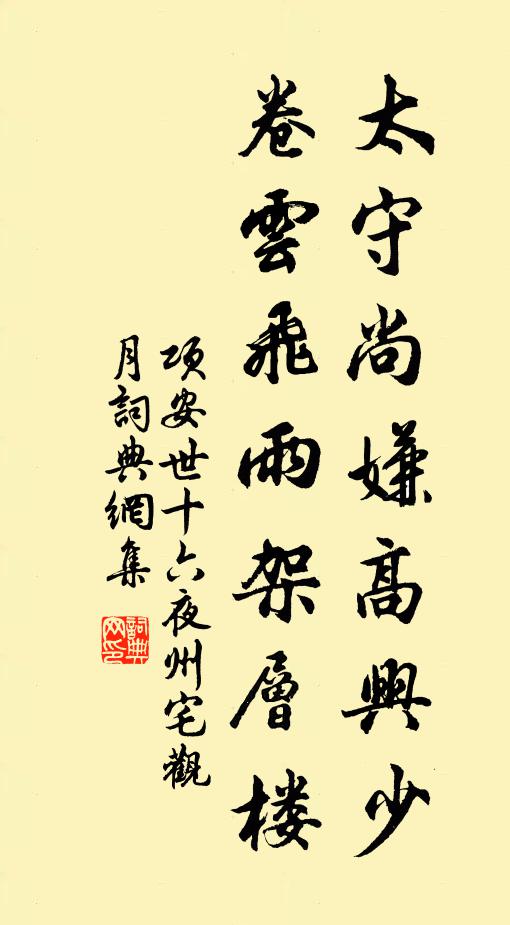 太守尚嫌高興少
卷雲飛雨架層楼
項安世十六夜州宅觀
月詞典網集
詞典网印